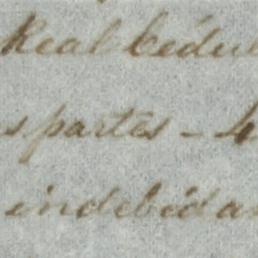 Real Cedul
s partes - 4
indebida